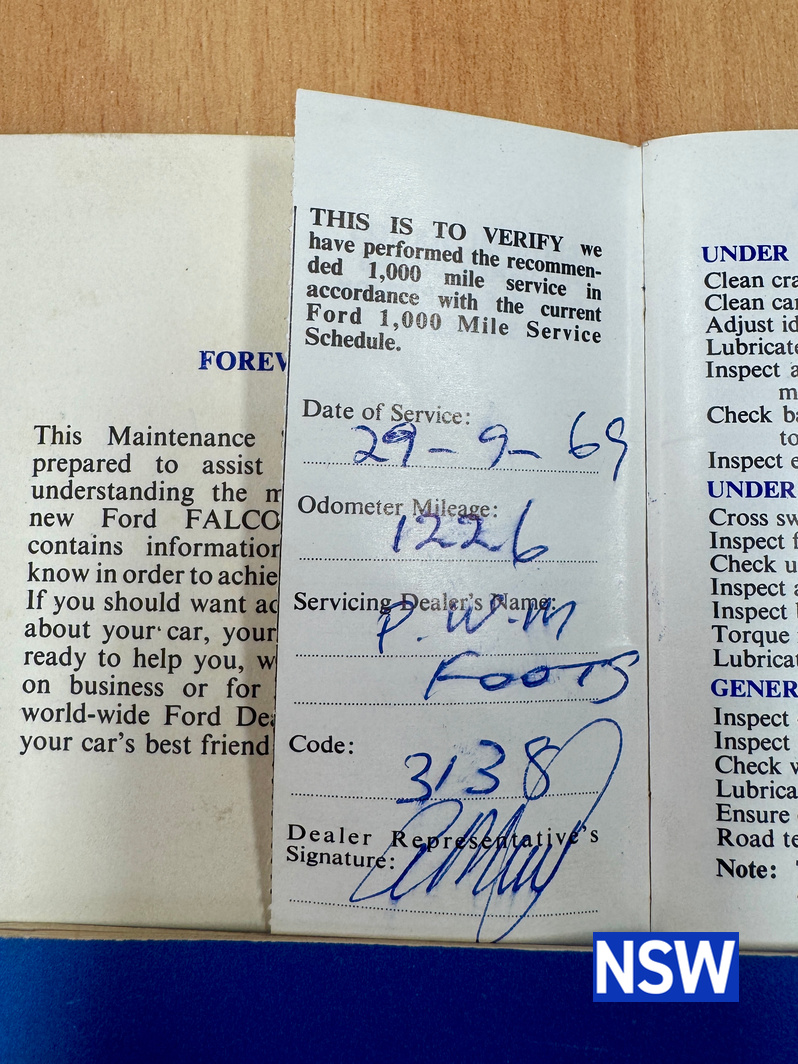 FOREV
This Maintenance
prepared to assist
understanding the m
new Ford FALCO
contains information
know in order to achie
If you should want ad
about your car, your
ready to help you, w
on business or for
world-wide Ford Dea
your car's best friend
THIS IS TO VERIFY we
have performed the recommen-
ded 1,000 mile service in
accordance with the current
Ford 1,000 Mile Service
Schedule.
Date of Service:
29-9-69
Odometer Mileage:
1226
Servicing Dealer's Name:
P.W.M
FOOTS
Code:
3138
Dealer Representative's
Signature:
UNDER
Clean cra
Clean car
Adjust id
Lubricate
Inspect a
m
Check ba
to
Inspect e
UNDER
Cross sw
Inspect f
Check u
Inspect a
Inspect
Torque
Lubricat
GENER
Inspect
Inspect
Check v
Lubrica
Ensure
Road te
Note:
NSW